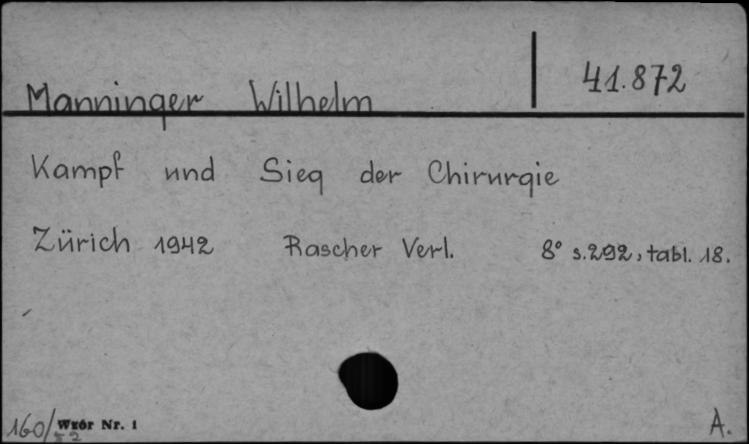 Manninger Wilhelm
41.872
Kampf und Sieg der Chirurgie
Zürich 1942 Rascher Verl. 8° s.292, tabl. 18.
160/52 Wzór Nr. 1
A.